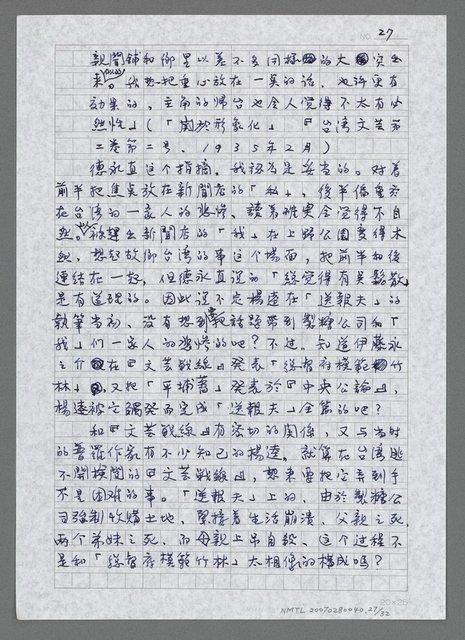 NO. 27
親聞鋪和鄉里以差不多同樣的大
來。我想把重心放在一篇的話，也許更有
効果的，主角的歸台也令人覺得不太有必
然性」（「創作形象化」 『台湾文芸第
二卷第二号、１９３５年２月）
德永直这个指摘，我認为是妥当的。对着
前半把焦点放在新聞店的「私」，後半偏重於
在台湾的一家人的悲慘，讀者確実会覺得不自
然。被趕出新聞店的「我」在上野公園變得木
然，想起故鄉台湾的事这个場面，把前半和後
連結在一起，但德永直説的「總覺得有臭鬆散」
是有道理的。因此説不定楊逵在「送報夫」的
執筆当初，沒有想到把話題帶到製糖公司和「
我」们一家人的悲慘的吧？不过，知道伊藤永
之介在『文芸戰線』發表「總督府模範竹
林」，又把「平埔蕃」發表於『中央公論』，
楊逵被它觸發而完成「送報夫」全篇的吧？
和『文芸戰線』有密切的関係，又与当时
的普羅作家有不少知己的楊逵，就算在台湾逃
不開檢閲的『文芸戰線』，想来要把它弄到手
不是困难的事。「送報夫」上的，由於製糖公
司強制收購土地，緊接着生活崩潰、父親之死，
两个弟妹之死，而母親上吊自殺、这个过程不
是和「總督府模範竹林」太相像的構成嗎？
20×25
NMTL 20070280040.27/32